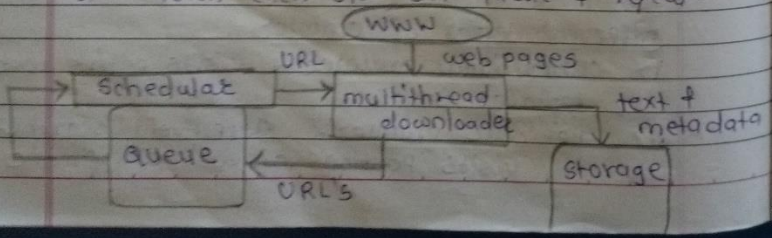 WWW
URL
web pages
schedular
multithread
downloader
text &
metadata
queue
storage
URL'S